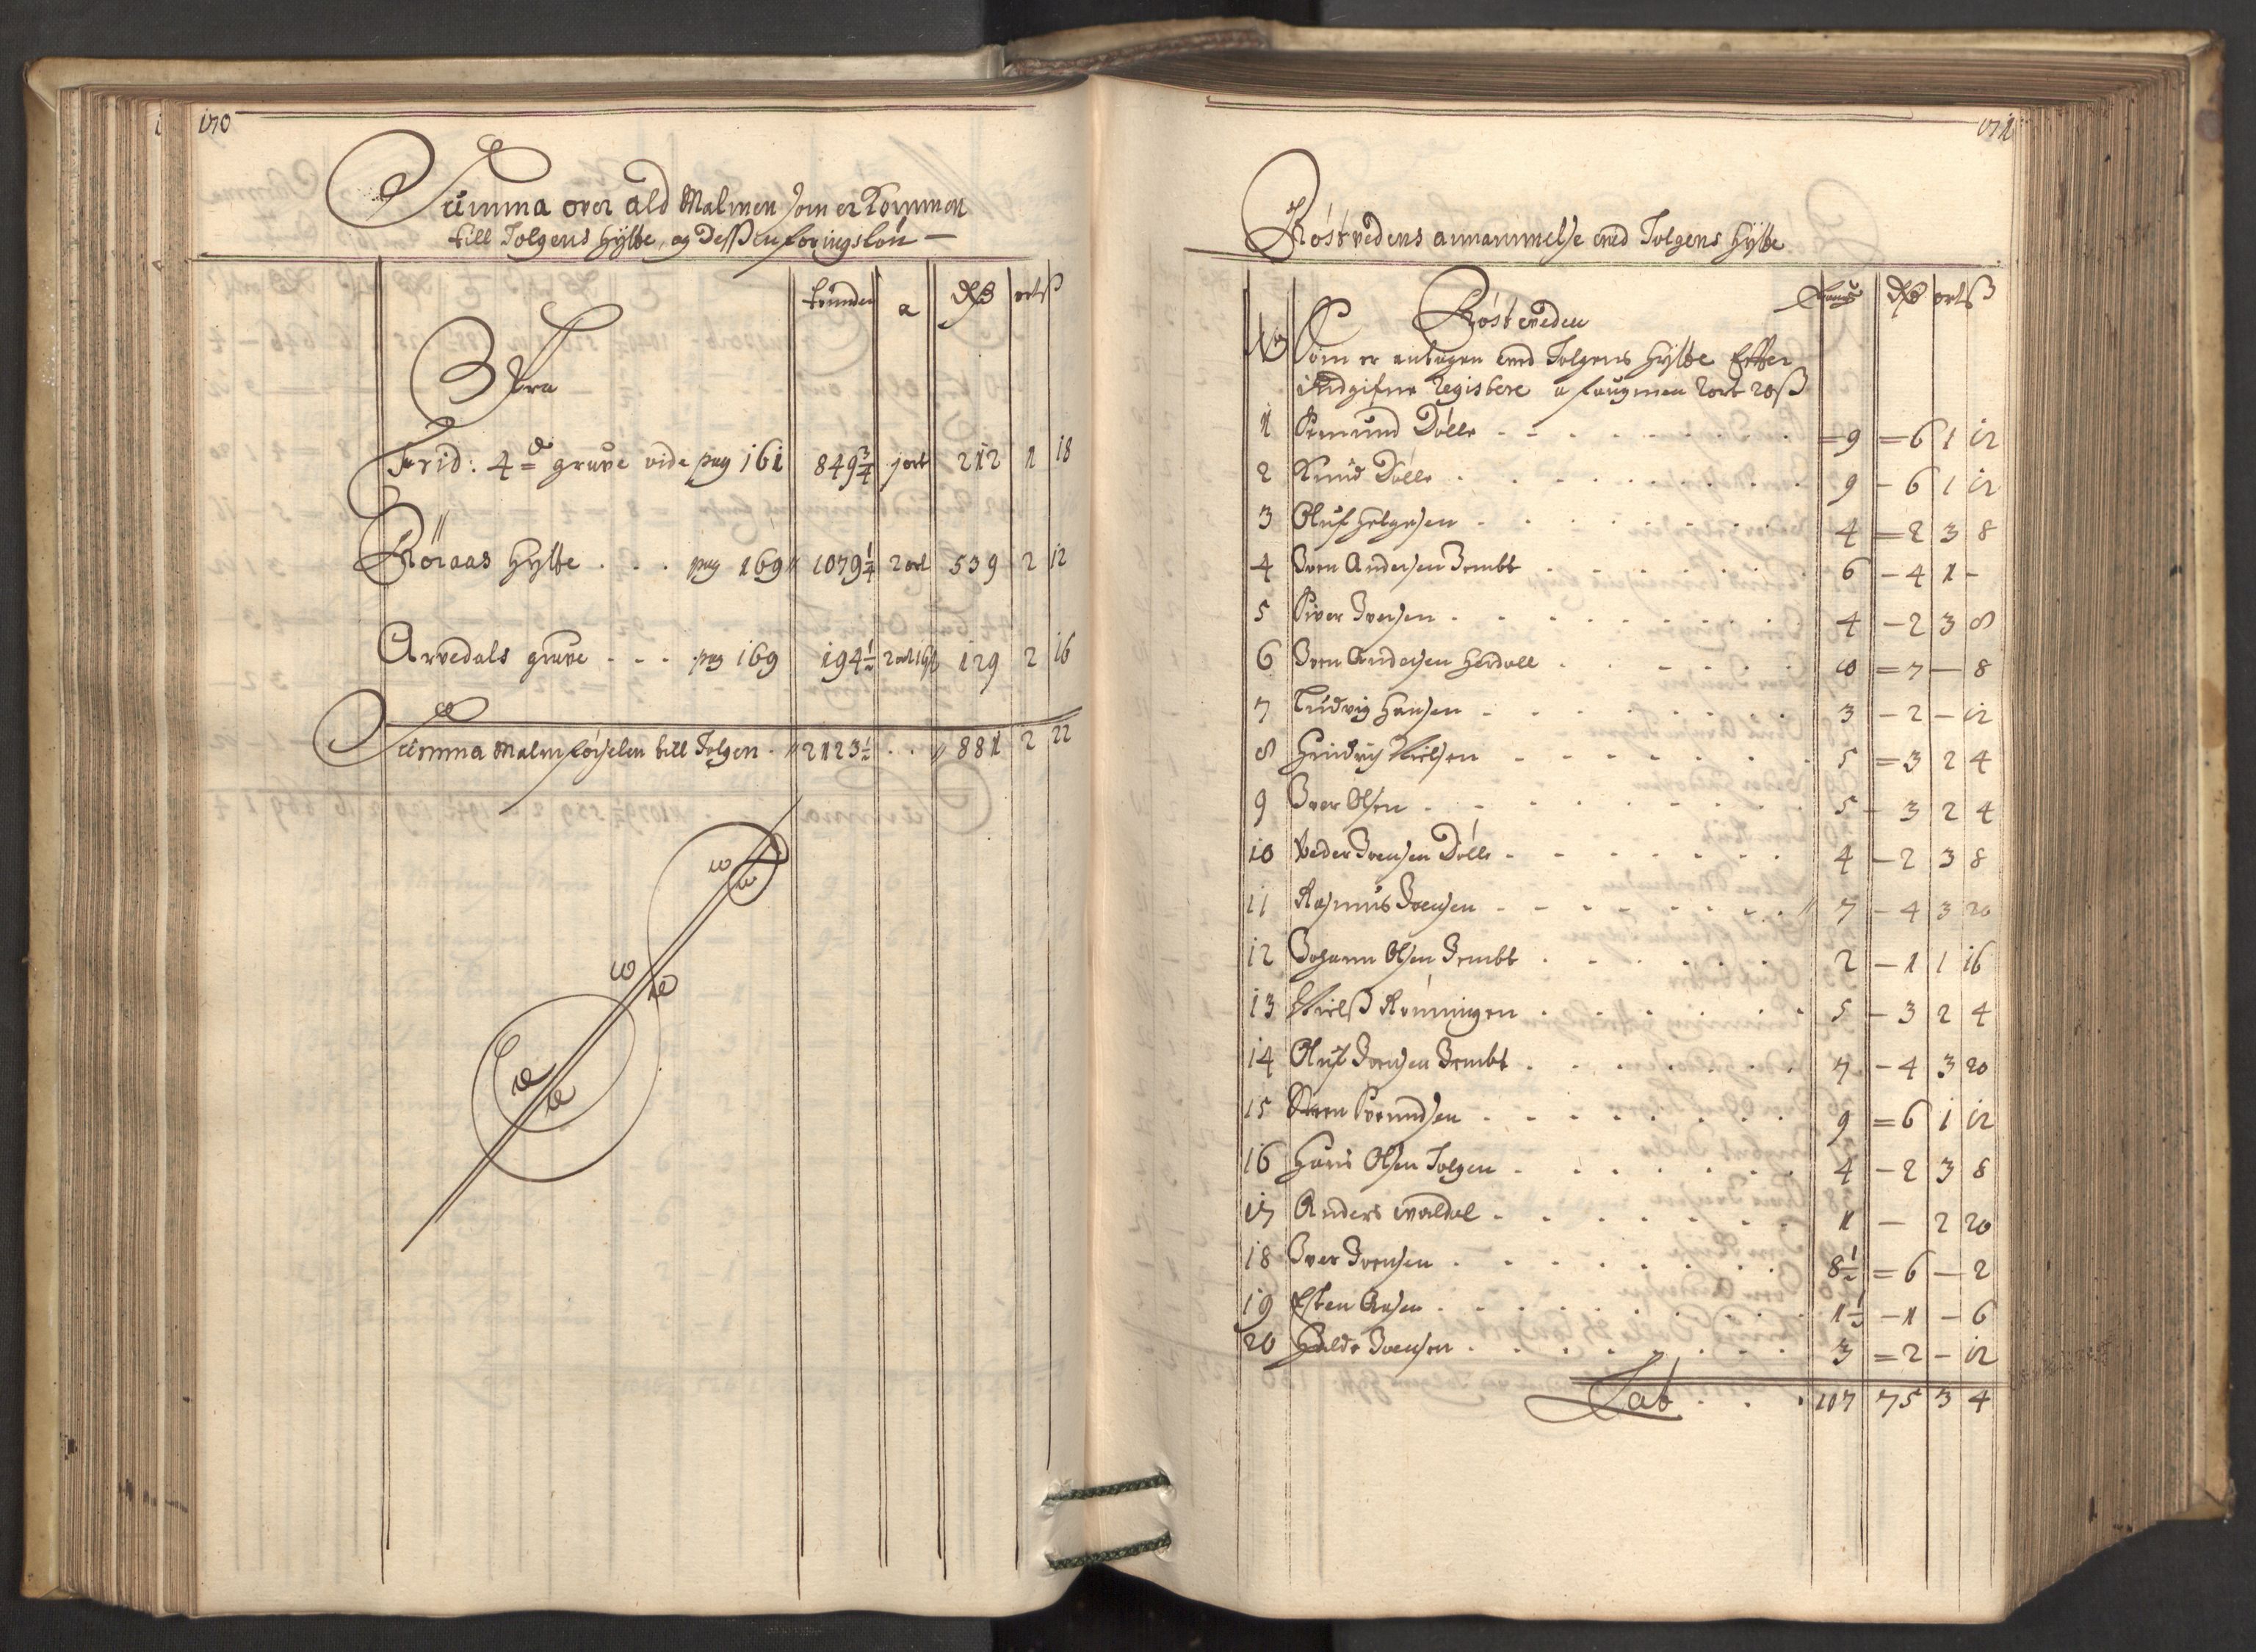 170
Summa over ald Malmen som er Kommen
till Tolgens Hytte, og Dessen foringslön
tønder a Rdr ort ß
Fra
Frid: 4de gruve vide pag 161 849 3/4 1 ort 212 1 18
Röraas Hytte . . . pag 169 1079 1/4 2 ort 539 2 12
Arvedals gruve - - - pag 169 194 1/2 2 ort 16ß 129 2 16
Summa Malmförselen till Tolgen . 2123 1/2 . . 881 2 22
171
Röstvedens annammelse ved Tolgens Hytte
No Röstveden faug Rdr ort ß
Som er antagen ved Tolgens Hytte Efter
Indgifne Registere a faugnen 2 ort 20ß
1 Simund Dölle 9 = 6 1 12
2 Knud Dölle 9 - 6 1 12
3 Oluf Helgesen 4 = 2 3 8
4 Sven Andersen Brubb 6 - 4 1 -
5 Siver Iversen 4 - 2 3 8
6 Sven Andersen Herdall 10 = 7 - 8
7 Ludvig Hansen 3 - 2 - 12
8 Hendrich Nielsen 5 = 3 2 4
9 Iver Olsen 5 - 3 2 4
10 Peder Ivensen Dölle 4 - 2 3 8
11 Rasmus Ivensen 7 - 4 3 20
12 Johann Olsen 2 - 1 1 16
13 Nielß Rönningen 5 - 3 2 4
14 Oluf Ivensen 7 - 4 3 20
15 9 = 6 1 12
16 Hans Olsen Tolgen 4 - 2 3 8
17 Anders 1 - 2 20
18 Iver Ivensen 8 1/2 = 6 - 2
19 Esten Aasen 1 1/2 - 1 - 6
20 Halde Ivensen 3 = 2 - 12
Lat . . . 107 75 3 4